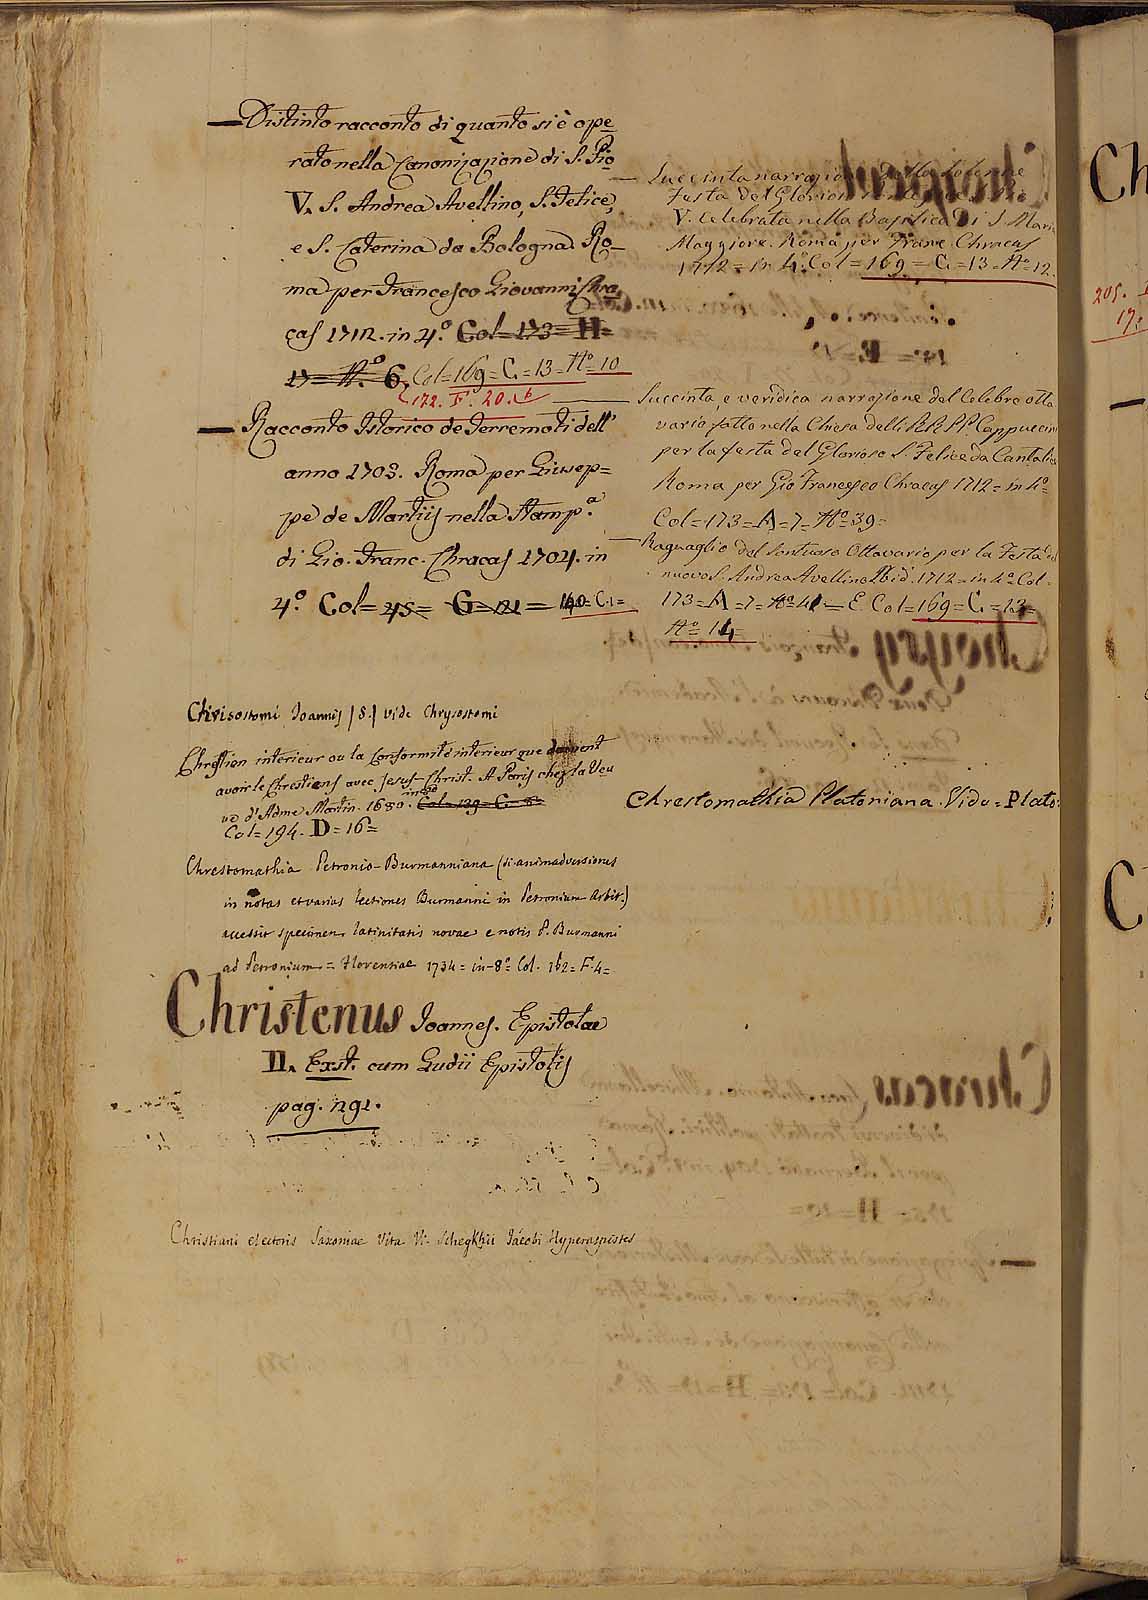 Distinto racconto di quanto si è ope
rato nella Canonizazione di S. Pio
V. S. Andrea Avellino, S. Felice,
e S. Caterina da Bologna. Ro-
ma per Francesco Giovanni Chra
cas 1712. in 4.° Col= 173= H=
17= N.° 6. Col=169= C.=13= N.° 10
172. F. 20.
Racconto Istorico de Terremoti dell'
anno 1703. Roma per Giusep=
pe de Martiis nella Stamp.a
di Gio. Franc. Chracas 1704. in
4.° Col= 45= G= 121= 160= C.1=
Chrisostomi Joannis /S./ vide Chrysostomi
Chrestien interieur ou la Conformité interieur que doivent
avoir le Chrestiens avec Jesus-Christ. A Paris chez la Veu
ve d'Adme Martin. 1680. Col= 139= C.
Col= 194. D= 16=
Chrestomathia Petronio-Burmanniana (si animadversiones
in notas et varias lectiones Burmanni in Petronium Arbit.)
accessit specimen latinitatis novae e notis P. Burmanni
ad Petronium= Florentiae 1734= in-8° Col. 162= F.4=
Christenus Joannes. Epistolae
II. Exst. cum Gudii Epistolis
pag. 291.
Christiani electoris Saxoniae Vita V. Schegkii Jacobi Hyperaspistes
Succinta narrazione della solenne
festa del Glorioso
V. Celebrata nella Basilica di S. Maria
Maggiore. Roma per Franc. Chracas
1712= in 4.° Col= 169= C.=13= N.° 12.
Succinta, e veridica narrazione del Celebre otta
vario fatto nella Chiesa delli RR. PP. Cappuccini
per la festa del Glorioso S. Felice da Cantalice
Roma per Gio Francesco Chracas 1712= in 4°=
Col= 173= A= 7= N.° 39=
Raguaglio del sontuoso Ottavario per la Festa del
nuovo S. Andrea Avellino Ibid. 1712= in 4.° Col=
173= A= 7= N.° 41= E Col= 169= C.= 13=
N.° 14=
Chrestomathia Platoniana. Vide= Plato
Ch
205.
17.
C